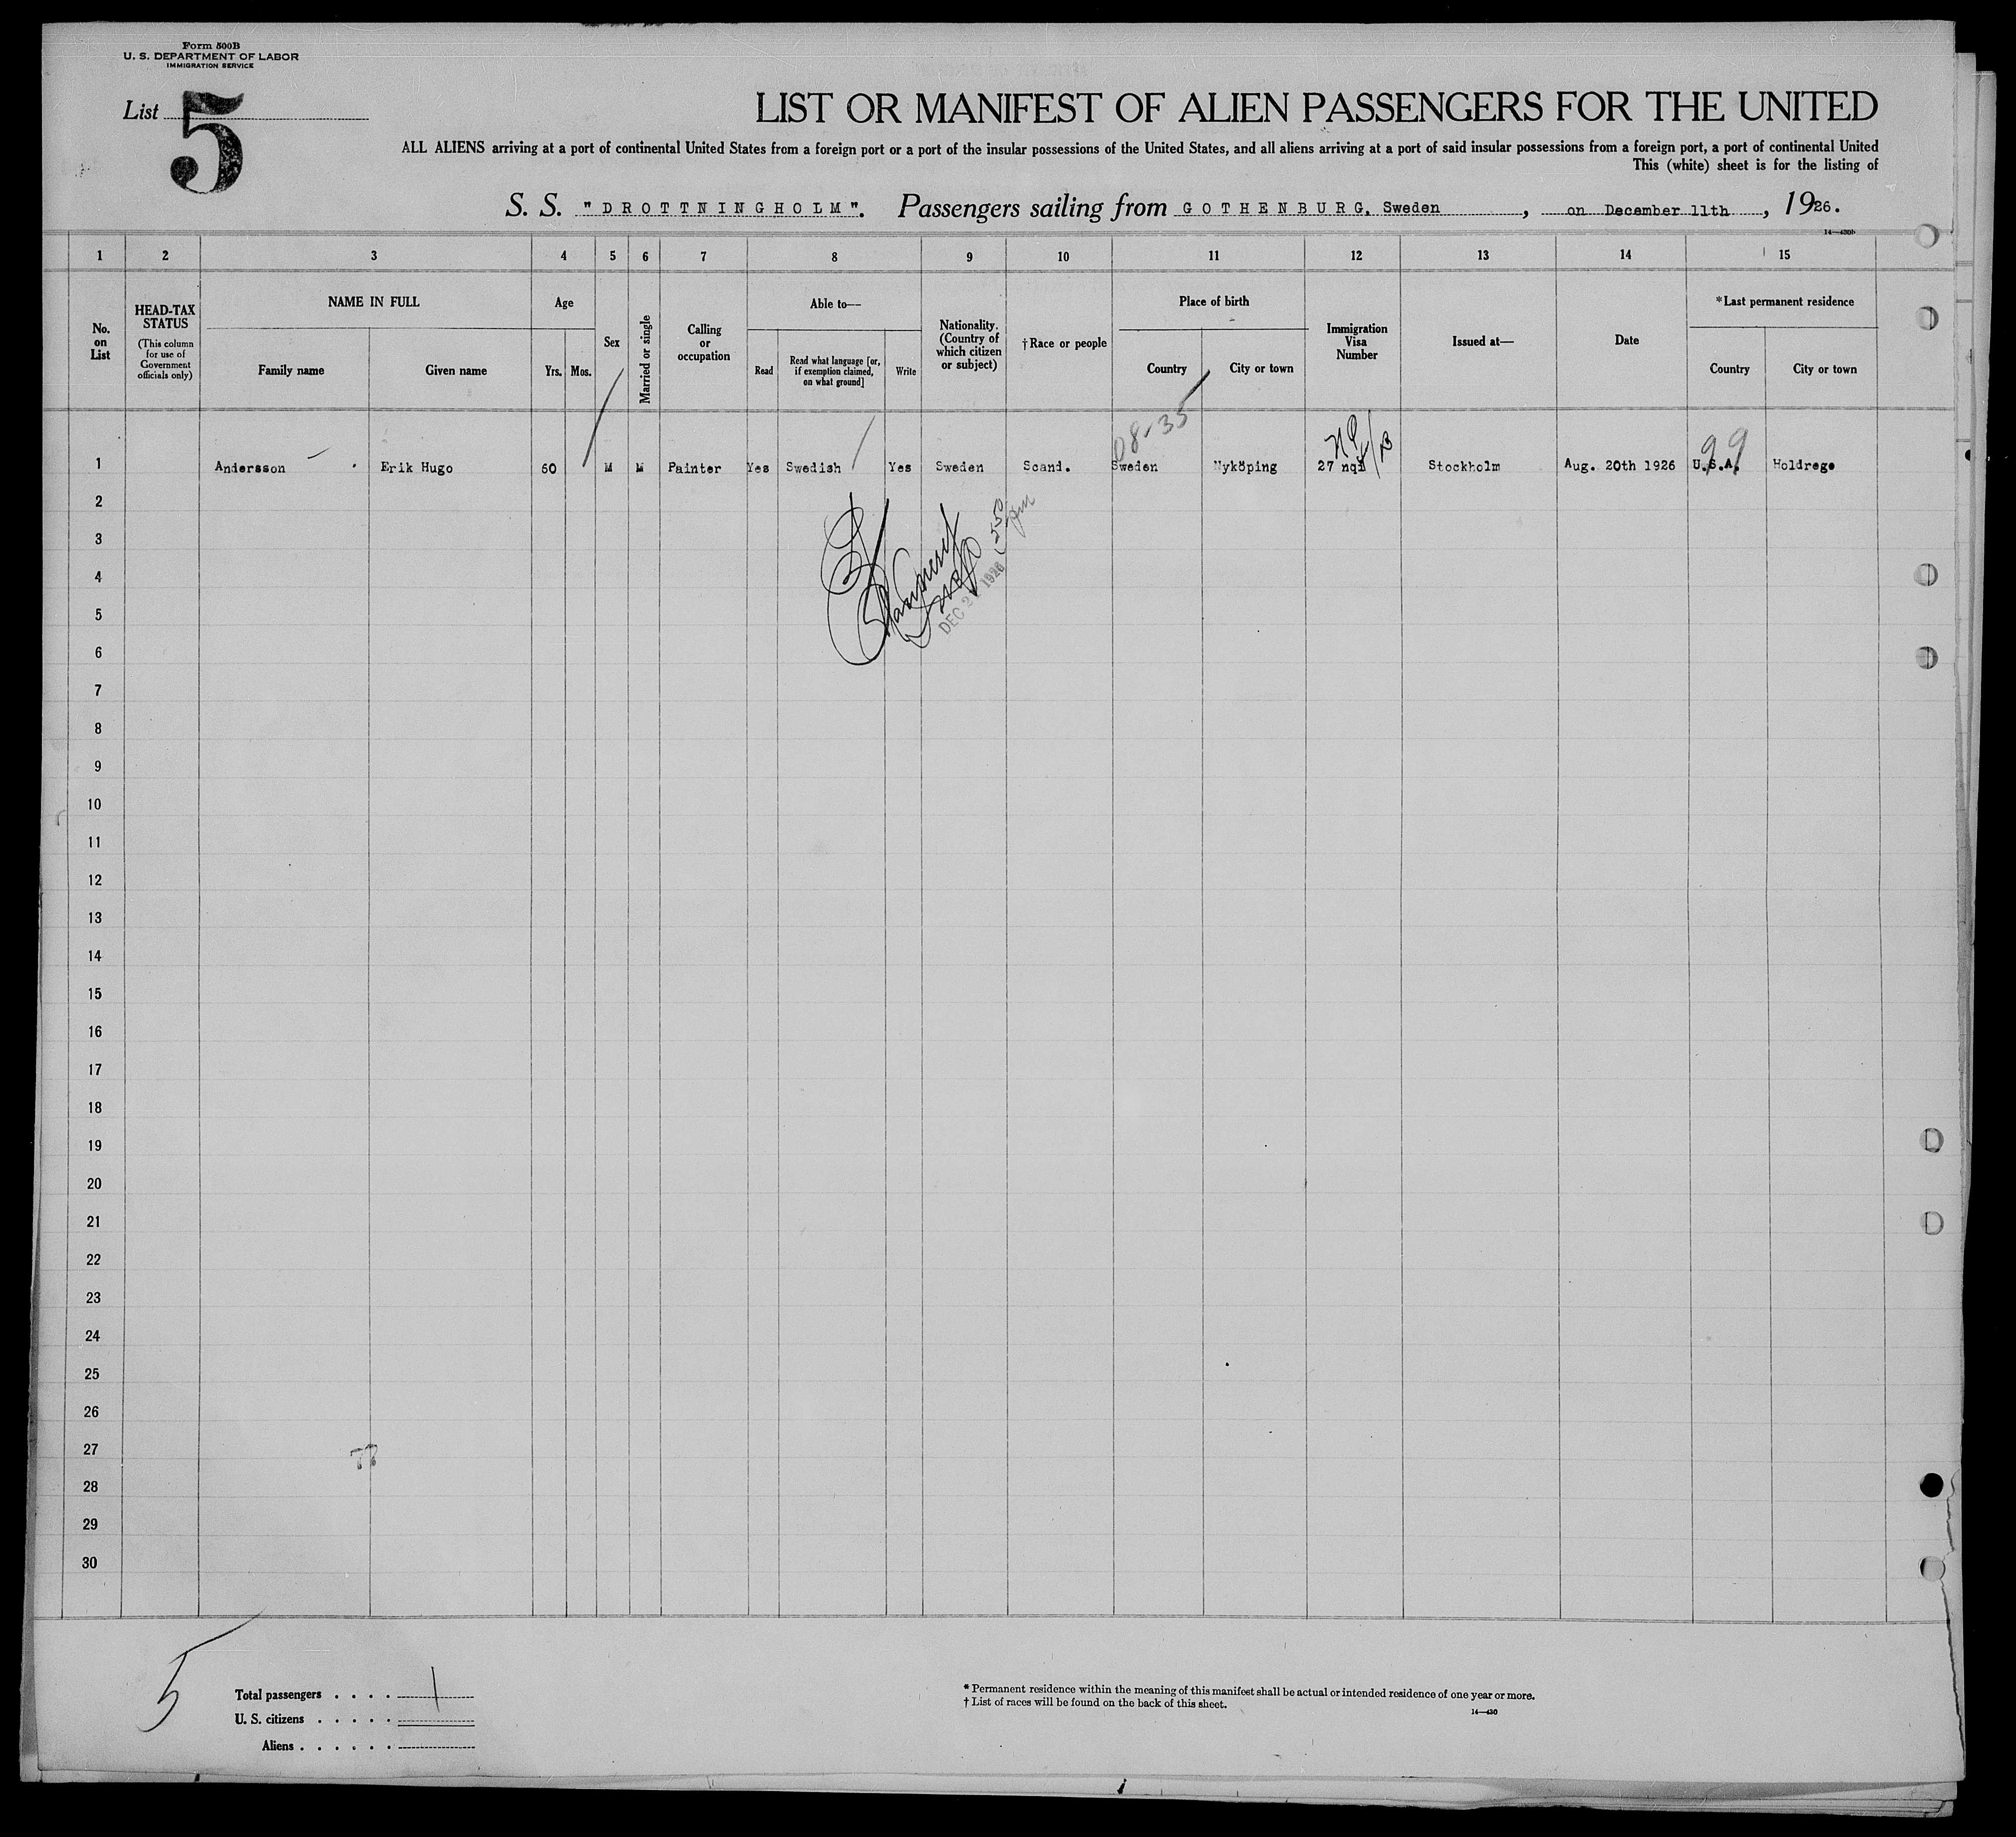 Form 500B
U. S. DEPARTMENT OF LABOR
IMMIGRATION SERVICE
List 5
LIST OR MANIFEST OF ALIEN PASSENGERS FOR THE UNITED
ALL ALIENS arriving at a port of continental United States from a foreign port or a port of the insular possessions of the United States, and all aliens arriving at a port of said insular possessions from a foreign port, a port of continental United
This (white) sheet is for the listing of
S. S. "DROTTNINGHOLM". Passengers sailing from GOTHENBURG, Sweden, on December 11th, 1926.
14—430b
1 2 3 4 5 6 7 8 9 10 11 12 13 14 15
No. on List
HEAD-TAX STATUS
(This column for use of Government officials only)
NAME IN FULL
Family name
Given name
Age
Yrs.
Mos.
Sex
Married or single
Calling or occupation
Able to—
Read
Read what language [or, if exemption claimed, on what ground]
Write
Nationality. (Country of which citizen or subject)
†Race or people
Place of birth
Country
City or town
Immigration Visa Number
Issued at—
Date
*Last permanent residence
Country
City or town
08-35
99
1 Andersson Erik Hugo 60 M M Painter Yes Swedish Yes Sweden Scand. Sweden Nyköping 27 nqi Stockholm Aug. 20th 1926 U.S.A. Holdrege
2
3
550 pm
4
DEC 2 1926
5
6
7
8
9
10
11
12
13
14
15
16
17
18
19
20
21
22
23
24
25
26
27
28
29
30
5
Total passengers . . . . 1
U. S. citizens . . . . .
Aliens . . . . . .
* Permanent residence within the meaning of this manifest shall be actual or intended residence of one year or more.
† List of races will be found on the back of this sheet.
14—430